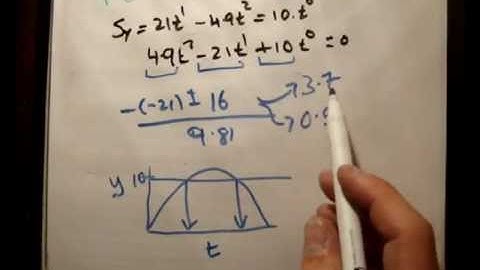 Sy = 21t¹ - 49t² = 10·t⁰
4·9t² - 21t¹ + 10t⁰ = 0
-(-21) ± 16
9.81
3·7
0·9
y 10
t